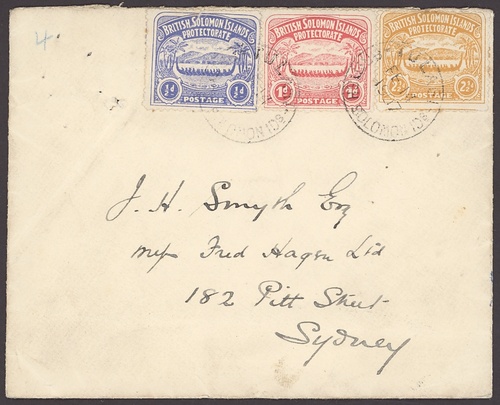 4
BRITISH SOLOMON ISLANDS
PROTECTORATE
½d ½d
POSTAGE
BRITISH SOLOMON ISLANDS
PROTECTORATE
1d 1d
POSTAGE
BRITISH SOLOMON ISLANDS
PROTECTORATE
2½d 2½d
POSTAGE
1907
SOLOMON ISDS
J. H. Smyth Esq
Mess Fred Hagen Ltd
182 Pitt Street
Sydney